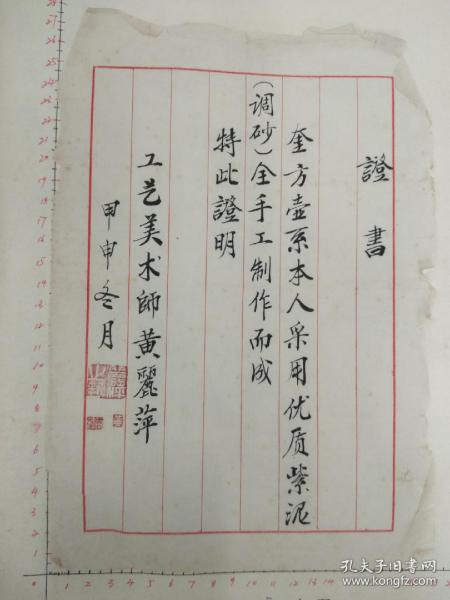 證書
奎方壶系本人采用优质紫泥
（调砂）全手工制作而成
特此證明
工艺美术師黄麗萍
甲申冬月
孔夫子旧书网
www.kongfz.com